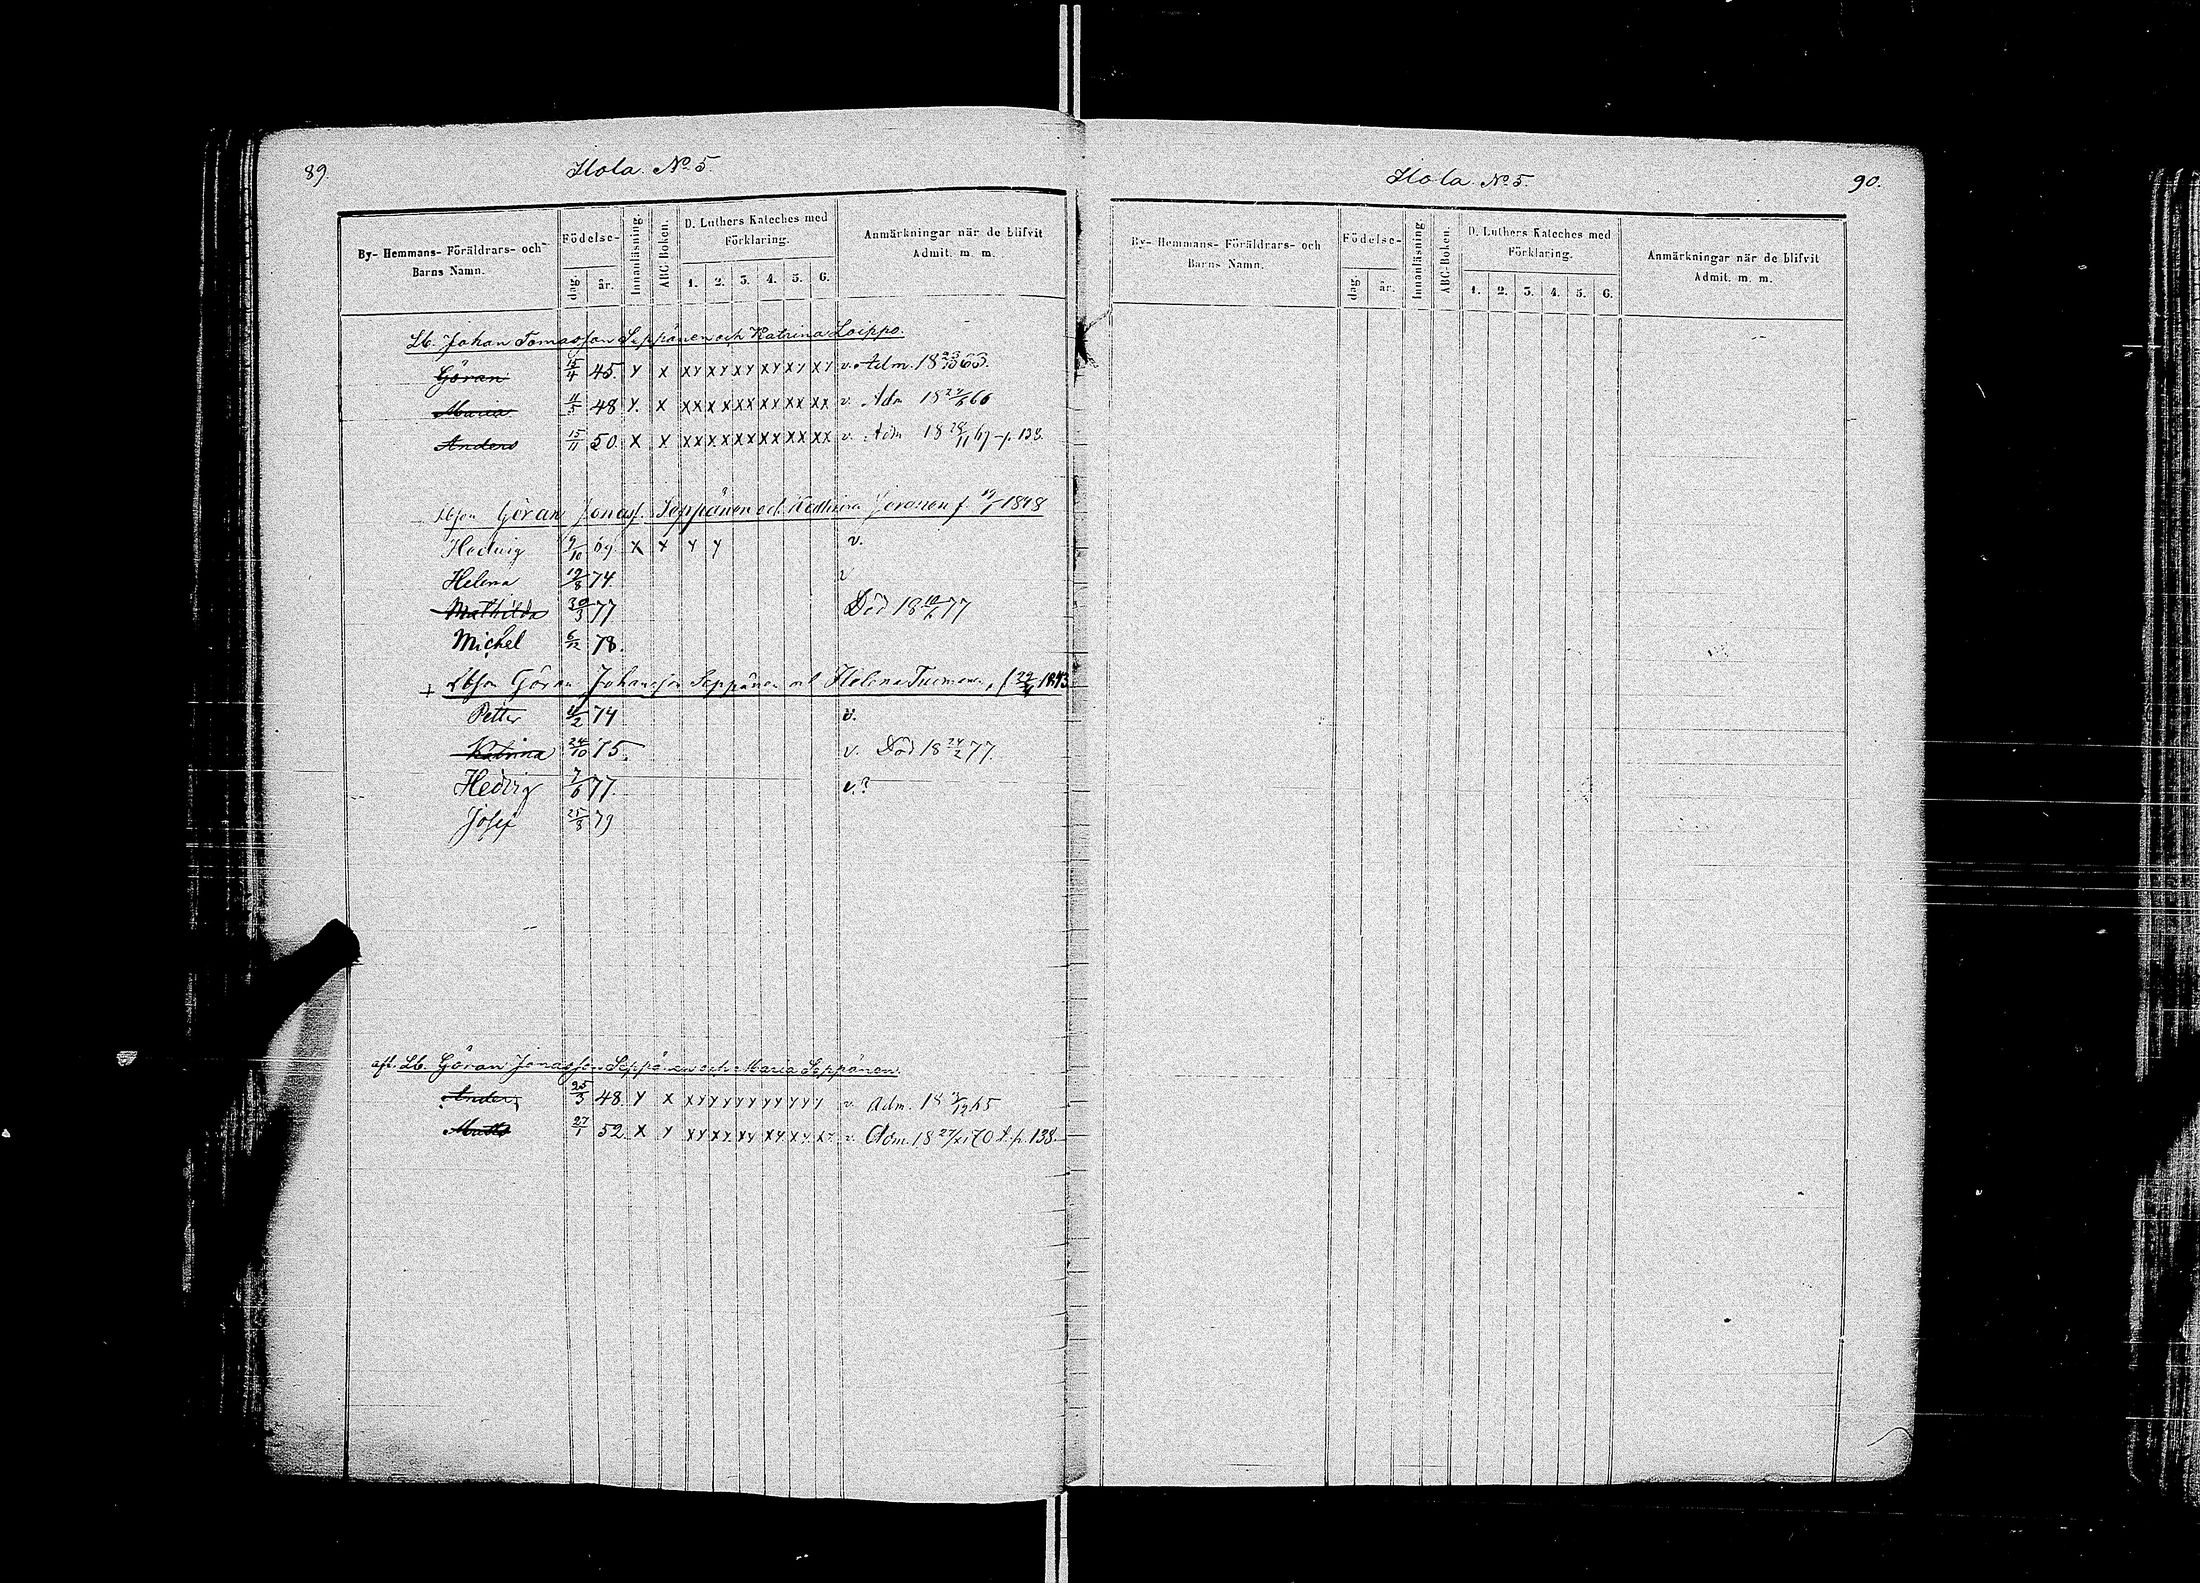 89.
Ilola. No 5.
By- Hemmans- Föräldrars- och Barns Namn.
Födelse-
dag
år.
Innanläsning
ABC-Boken.
D. Luthers Kateches med Förklaring.
1. 2. 3. 4. 5. 6.
Anmärkningar när de blifvit Admit. m. m.
Lb. Johan Tomasson Seppänen och Katrina Loippo.
Göran 15/4 45. x x xx xx xx xx xx xx v. Adm. 18 23/10 63.
Maria 11/5 48 x. x xx xx xx xx xx xx v. Adm 18 24/6 66
Anders 15/11 50. x x xx xx xx xx xx xx v. Adm 18 /11 67 p. 138.
Lbson Göran Jonass. Seppänen och Kathrina f. 19/1 1848
Hedvig 9/10 69. x x x x v.
Helena 19/8 74. v
Mathilda 30/3 77 Död 18 77
Michel 6/12 78.
+ Lbson Göran Johansson Seppänen och Helena Tuomanen, f. 1843
Petter 11/2 74 v.
Katrina 24/10 75. v. Död 18 24/2 77.
Hedvig 7/6 77. v.?
Josef 25/8 79
aft. Lb. Göran Jonasson Seppänen och Maria Seppänen.
Anders 25/3 48. x x xx xx xx xx xx x v. Adm. 18 /12 65
Matts 27/1 52. x x xx xx xx xx xx xx v. Adm. 18 27/XI 70 p. 138.
Ilola. No 5.
90.
By- Hemmans- Föräldrars- och Barns Namn.
Födelse-
dag
år.
Innanläsning
ABC-Boken.
D. Luthers Kateches med Förklaring.
1. 2. 3. 4. 5. 6.
Anmärkningar när de blifvit Admit. m. m.